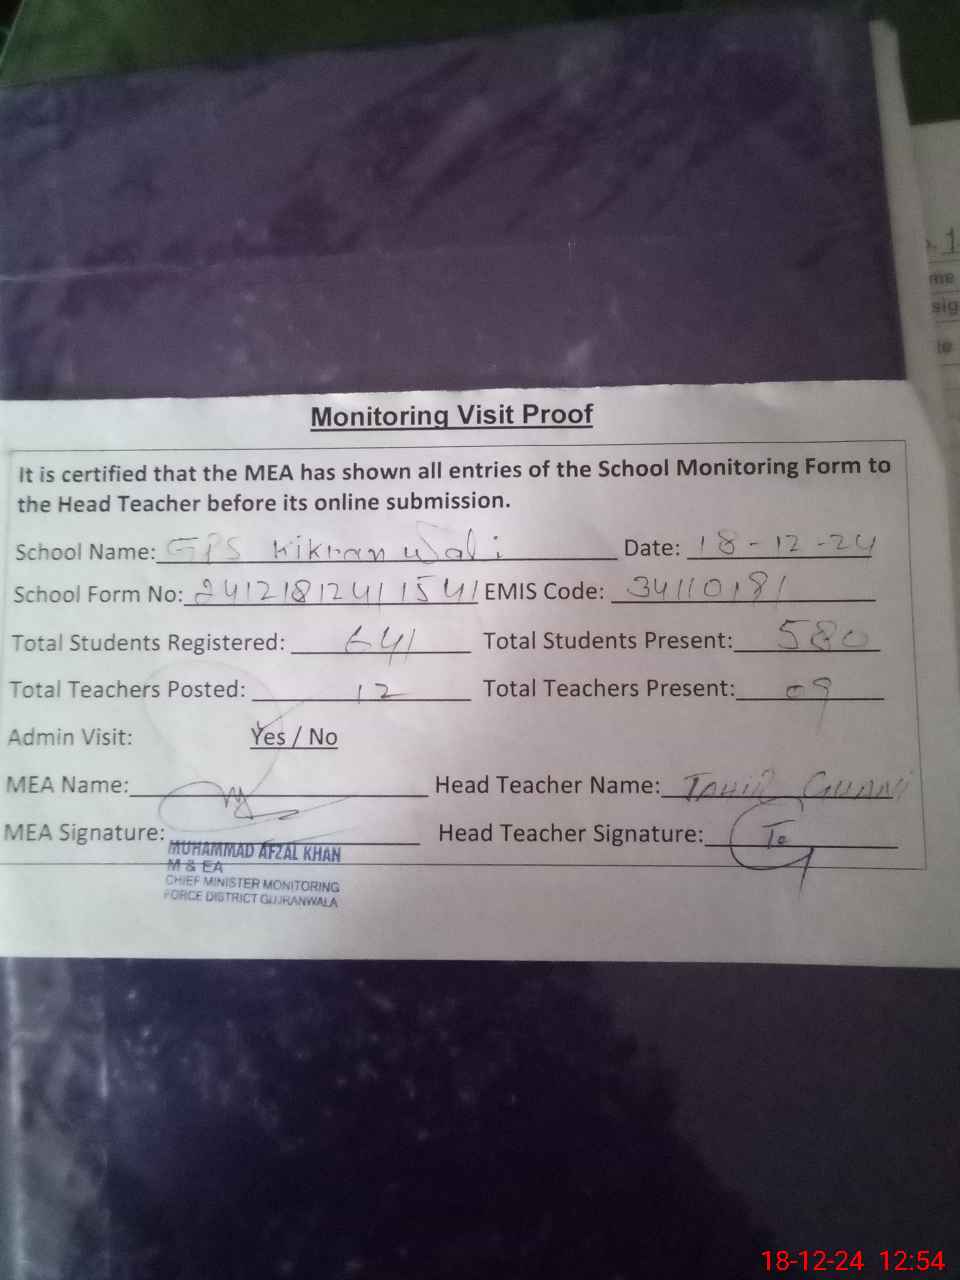 Monitoring Visit Proof
It is certified that the MEA has shown all entries of the School Monitoring Form to
the Head Teacher before its online submission.
School Name: GPS Kikran Wali Date: 18-12-24
School Form No: 2412181241154 EMIS Code: 34110181
Total Students Registered: 641 Total Students Present: 580
Total Teachers Posted: 12 Total Teachers Present: 09
Admin Visit: Yes / No
MEA Name: Head Teacher Name: TAHIR GHANI
MEA Signature: Head Teacher Signature:
MUHAMMAD AFZAL KHAN
M & EA
CHIEF MINISTER MONITORING
FORCE DISTRICT GUJRANWALA
18-12-24 12:54